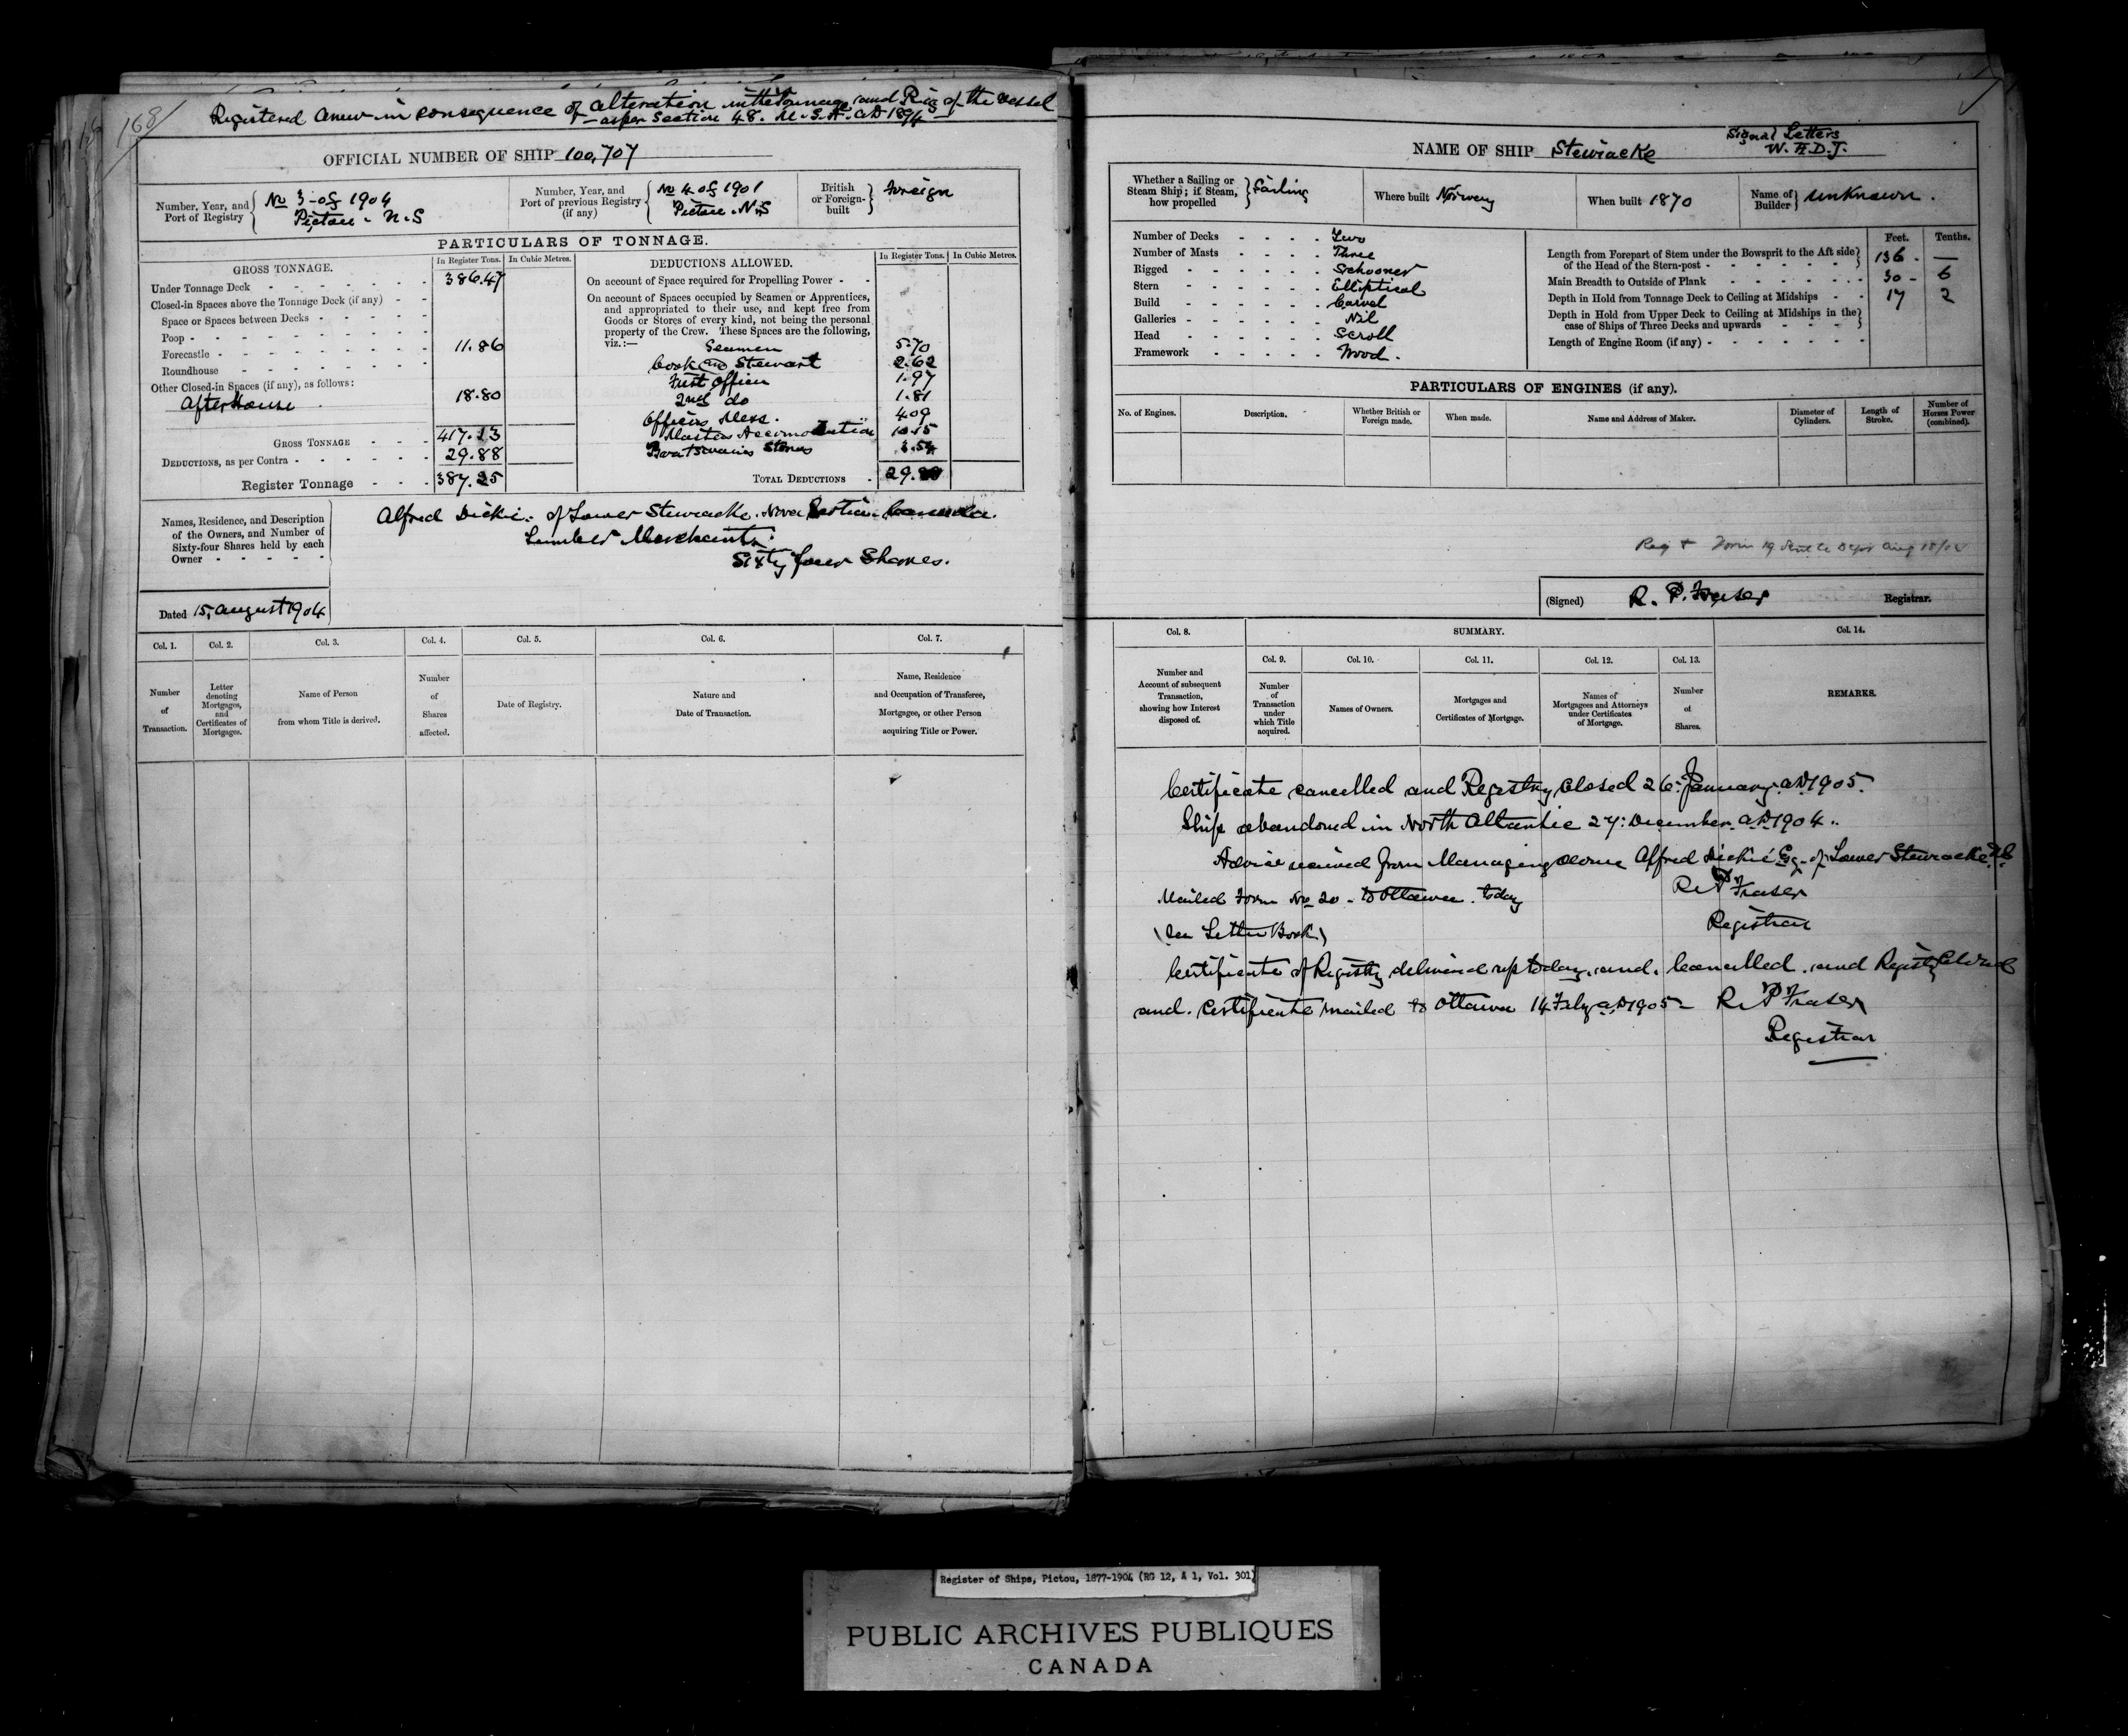 168
Registered Anew in consequence of alteration in the Tonnage and Rig of the vessel
as per Section 48. M.S.A. AD 1894
OFFICIAL NUMBER OF SHIP 100,707
Number, Year, and Port of Registry No 3 of 1904 Pictou - N.S
Number, Year, and Port of previous Registry (if any) No 4 of 1901 Pictou. N.S
British or Foreign-built Foreign
PARTICULARS OF TONNAGE.
GROSS TONNAGE. In Register Tons. In Cubic Metres.
Under Tonnage Deck 386.47
Closed-in Spaces above the Tonnage Deck (if any)
Space or Spaces between Decks
Poop
Forecastle 11.86
Roundhouse
Other Closed-in Spaces (if any), as follows:
After House 18.80
GROSS TONNAGE 417.13
DEDUCTIONS, as per Contra 29.88
Register Tonnage 387.25
DEDUCTIONS ALLOWED. In Register Tons. In Cubic Metres.
On account of Space required for Propelling Power
On account of Spaces occupied by Seamen or Apprentices,
and appropriated to their use, and kept free from
Goods or Stores of every kind, not being the personal
property of the Crew. These Spaces are the following,
viz.:—
Seamen 5.70
Cook and Stewart 2.62
First Officer 1.97
2nd do 1.81
Officers Mess. 4.09
Masters Accomodation 10.15
Boatswains Stores 3.54
TOTAL DEDUCTIONS 29.88
Names, Residence, and Description
of the Owners, and Number of
Sixty-four Shares held by each
Owner
Alfred Dickie. of Lower Stewiacke. Nova Scotia. Canada.
Lumber Merchant.
Sixty four Shares.
Dated 15, August 1904
Col. 1. Col. 2. Col. 3. Col. 4. Col. 5. Col. 6. Col. 7.
Number of Transaction.
Letter denoting Mortgages, and Certificates of Mortgages.
Name of Person from whom Title is derived.
Number of Shares affected.
Date of Registry.
Nature and Date of Transaction.
Name, Residence and Occupation of Transferee, Mortgagee, or other Person acquiring Title or Power.
NAME OF SHIP Stewiacke
Signal Letters
W.H.D.J.
Whether a Sailing or Steam Ship; if Steam, how propelled Sailing
Where built Norway
When built 1870
Name of Builder Unknown.
Number of Decks Two
Number of Masts Three
Rigged Schooner
Stern Elliptical
Build Carvel
Galleries Nil
Head Scroll
Framework Wood.
Feet. Tenths.
Length from Forepart of Stem under the Bowsprit to the Aft side
of the Head of the Stern-post 136 . —
Main Breadth to Outside of Plank 30 - 6
Depth in Hold from Tonnage Deck to Ceiling at Midships 17 2
Depth in Hold from Upper Deck to Ceiling at Midships in the
case of Ships of Three Decks and upwards
Length of Engine Room (if any)
PARTICULARS OF ENGINES (if any).
No. of Engines. Description. Whether British or Foreign made. When made. Name and Address of Maker. Diameter of Cylinders. Length of Stroke. Number of Horses Power (combined).
(Signed) R. P. Fraser Registrar.
Col. 8. SUMMARY. Col. 14.
Col. 9. Col. 10. Col. 11. Col. 12. Col. 13.
Number and Account of subsequent Transaction, showing how Interest disposed of.
Number of Transaction under which Title acquired.
Names of Owners.
Mortgages and Certificates of Mortgage.
Names of Mortgagees and Attorneys under Certificates of Mortgage.
Number of Shares.
REMARKS.
Certificate cancelled and Registry Closed 26: January. AD 1905.
Ship abandoned in North Atlantic 27: December. AD 1904..
Advice received from Managing Owner Alfred Dickie Esq. of Lower Stewiacke
Mailed Form No 20 - to Ottawa. today R. P. Fraser
(See Letter Book) Registrar
Certificate of Registry delivered up today. and. Cancelled. and Registry Closed
and. Certificate mailed to Ottawa 14 Feby AD 1905 - R. P. Fraser
Registrar
Register of Ships, Pictou, 1877-1904 (RG 12, A 1, Vol. 301)
PUBLIC ARCHIVES PUBLIQUES
CANADA